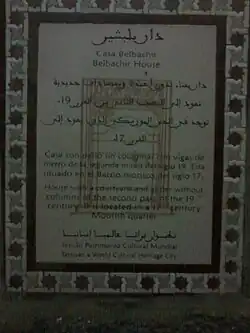 دار بلبشير
Casa Belbachir
Belbachir House
دار بفناء بدون أعمدة وبعوارض حديدية
تعود إلى النصف الثاني من القرن 19.
توجد في الحي الموريسكي الذي يعود إلى
القرن 17.
Casa con patio sin columnas con vigas de
hierro de la segunda mitad del siglo 19. Está
situado en el Barrio morisco del siglo 17.
House with a courtyard and girder without
columns of the second part of the 19th
century. It is located in a 17th century
Moorish quarter
تطوان تراثا عالميا إنسانيا
Tetuán Patrimonio Cultural Mundial
Tetouan a World Cultural Heritage City